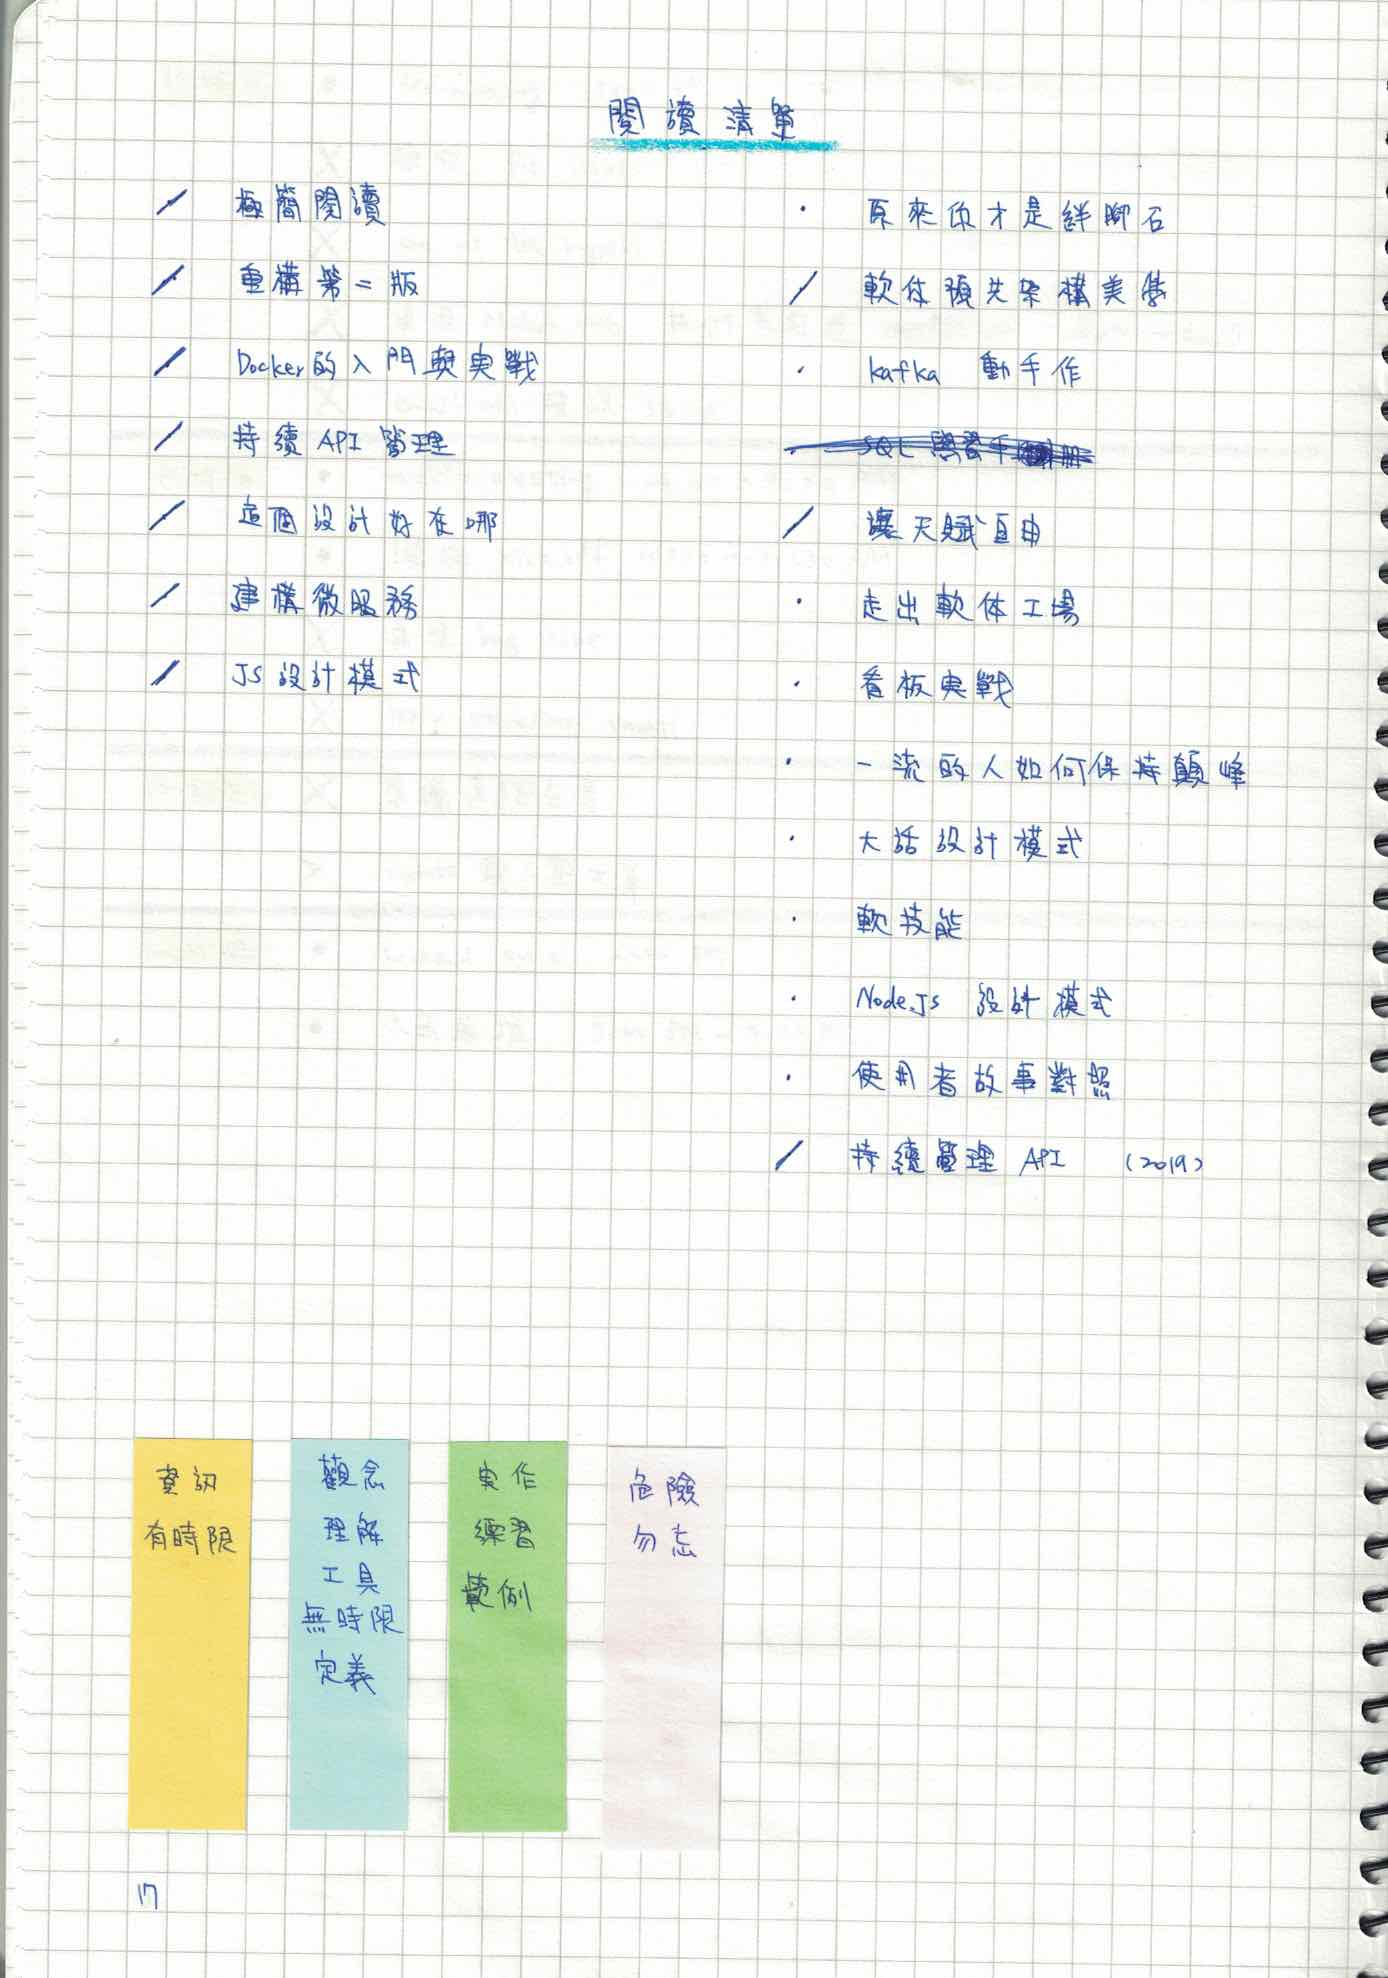 閱讀清單
極簡閱讀
重構第二版
Docker的入門與実戰
持續 API 管理
這個設計好在哪
建構微服務
JS 設計模式
原來你才是絆腳石
軟体預先架構美學
kafka 動手作
SQL 學習手冊
讓天賦自由
走出軟体工場
看板実戰
一流的人如何保持顛峰
大話設計模式
軟技能
Node.js 設計模式
使用者故事對照
持續管理 API (2019)
資訊
有時限
觀念
理解
工具
無時限
定義
実作
練習
範例
危險
勿忘
17